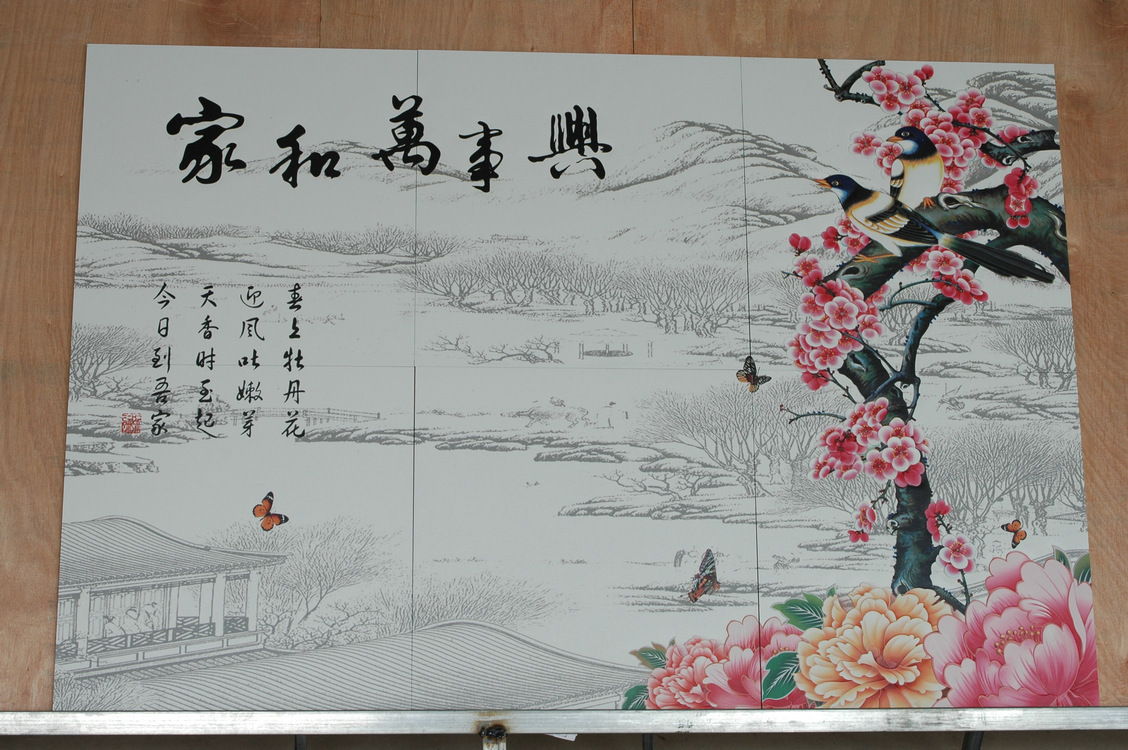 家和萬事興
春上牡丹花
迎風吐嫩芽
天香时至起
今日到吾家